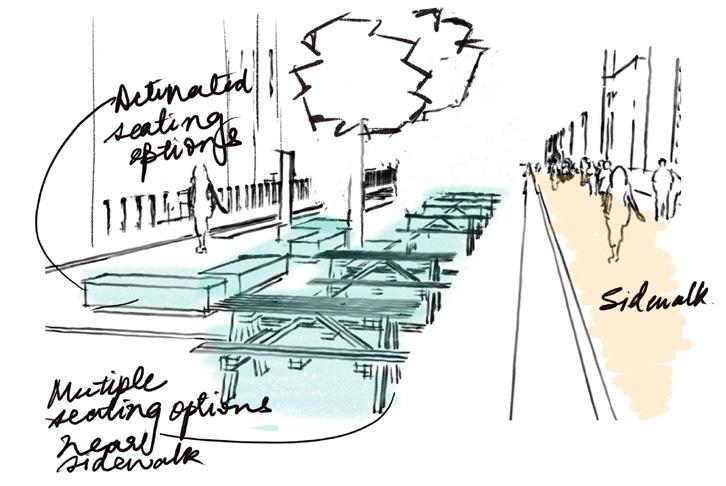 Activated
seating
options
Sidewalk.
Mutiple
seating options
near
sidewalk